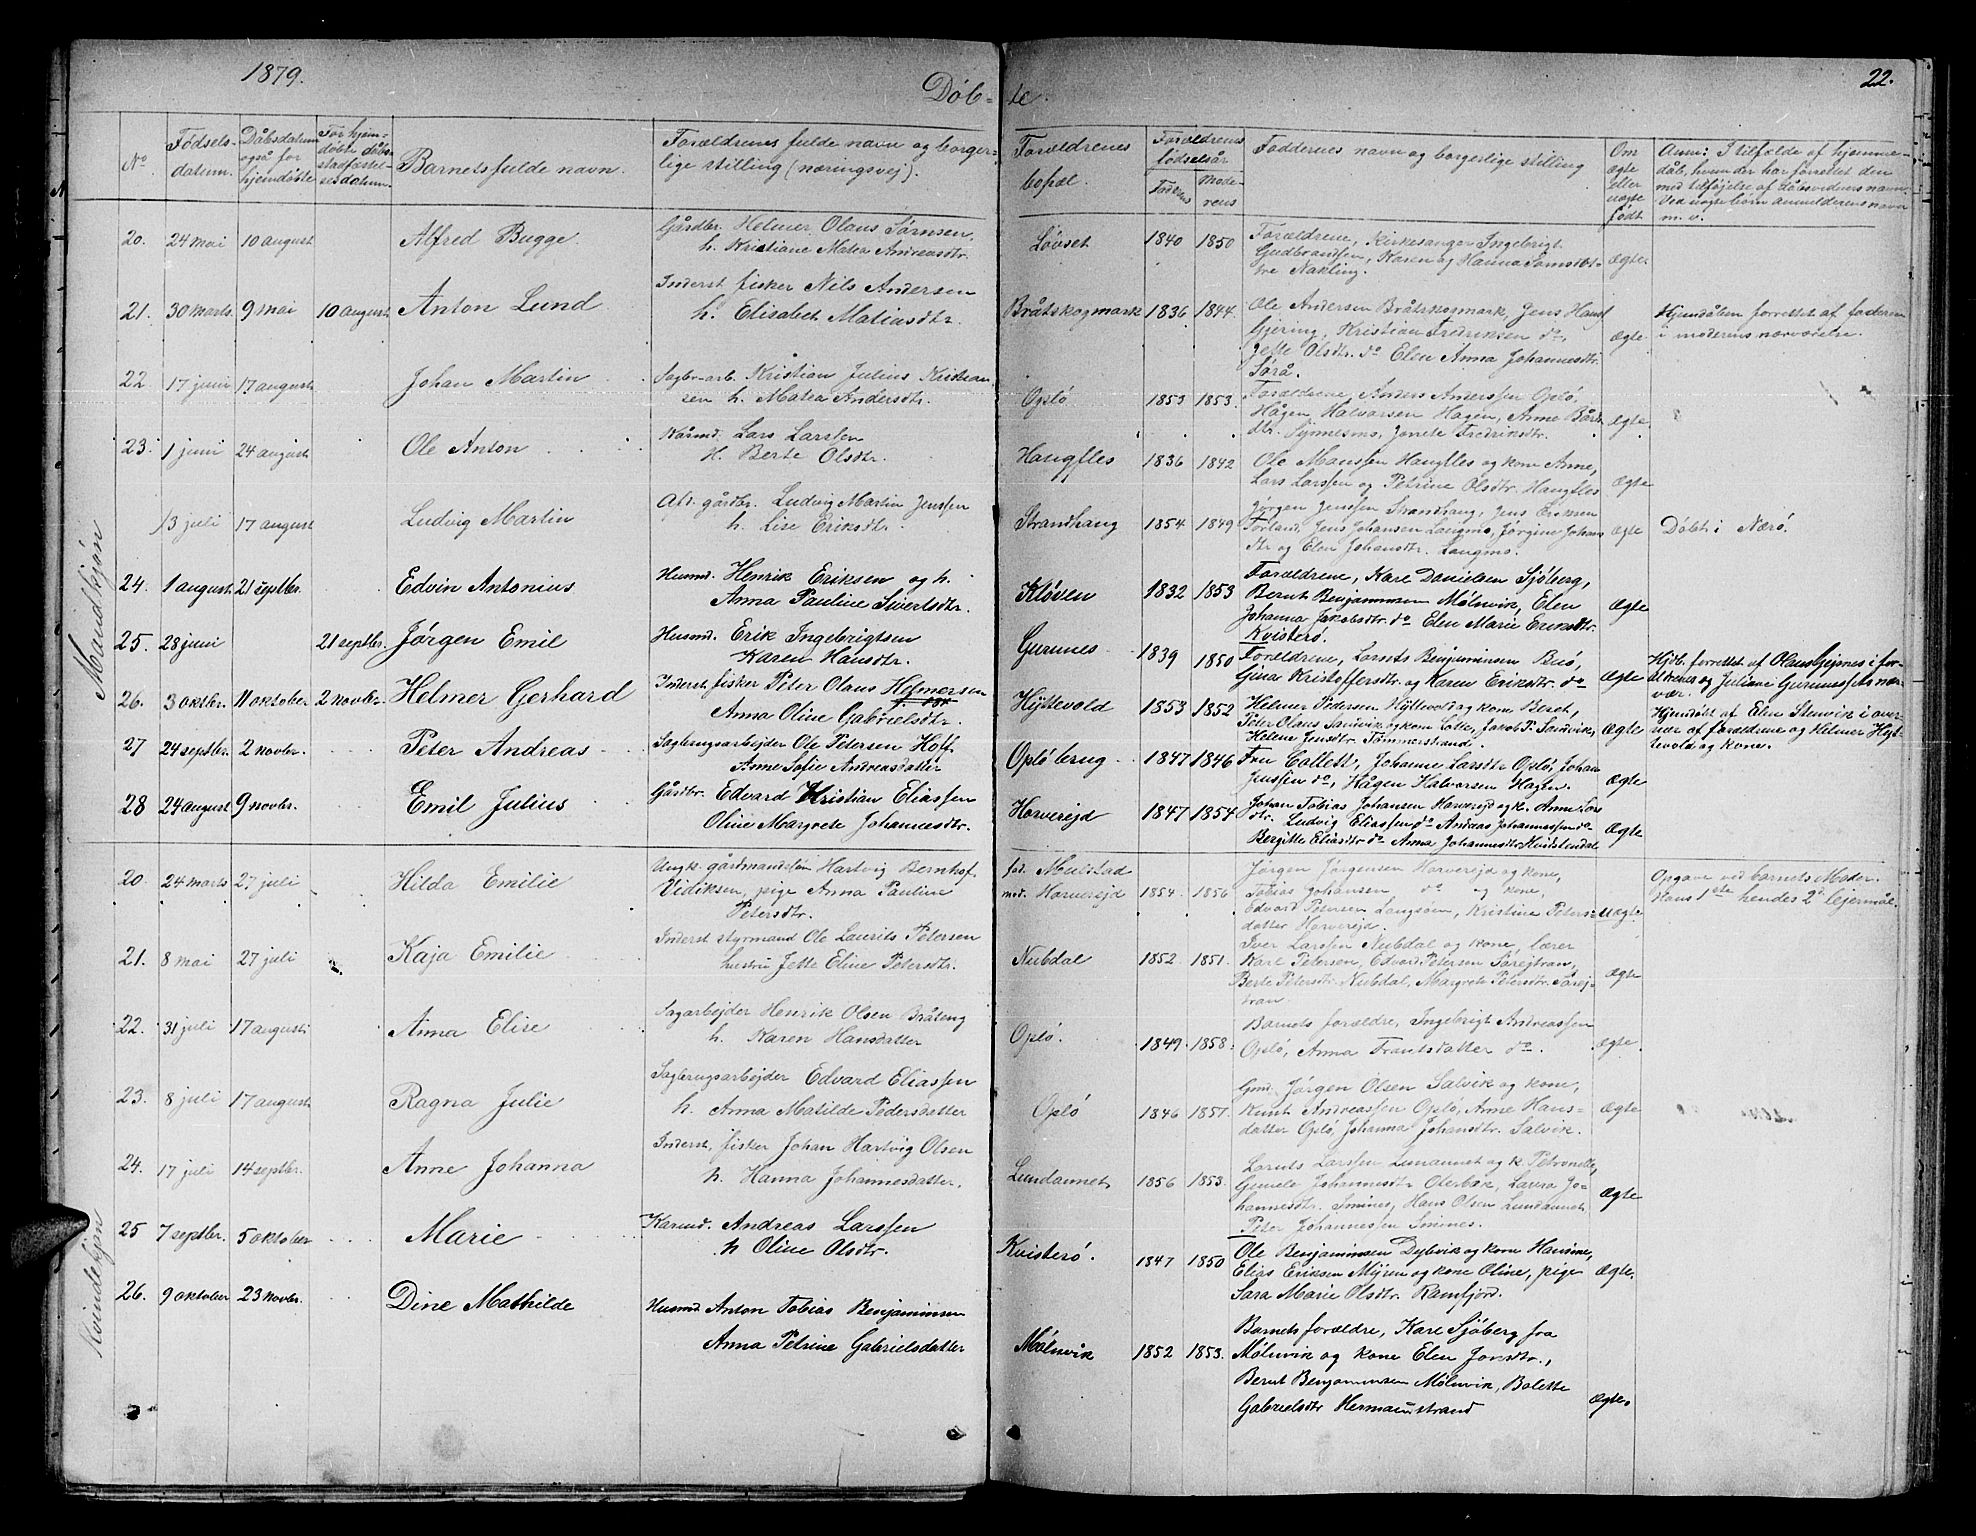 1879.
Døb-te.
22.
No
Fødsels-
datum.
Dåbsdatum
også for
hjemdøbte
For hjem-
døbte dåbs-
stadfæstel-
sesdatum.
Barnets fulde navn.
Forældrenes fulde navn og borger-
lige stilling (næringsvej).
Forældrenes
bopæl.
Forældrenes
fødselsår
Faderens
Mode-
rens
Faddernes navn og borgerlige stilling
Om
ægte
eller
uægte
født
Anm: I tilfælde af hjemme-
dåb, hvem der har forrettet den
med tilføjelse af dåbsvidnersnavn.
Ved uægte børn anmelderens navn
m. v.
Mandkjøn
20. 24 mai 10 august Alfred Bugge.
Gårdbr. Helmer Olaus Sørnsen,
h. Kristiane Matea Andreasdtr.
Løvset 1840 1850
Forældrene, Kirkesanger Ingebrigt
Gudbrandsen, Karen og Hanna
Nakling.
ægte
21. 30 marts 9 mai 10 august Anton Lund
Inderst fisker Nils Andersen
h. Elisabet Matiasdtr.
Bråtskogmark 1836 1844.
Ole Andersen Bråtskogmark, Jens Hans
Gjering, Kristian Fredriksen do.
Jette Olsdtr. do Elen Anna Johannesdtr.
Sørå.
ægte
Hjemdåben forrettet af faderen
i moderens nærværelse.
22 17 juni 17 august Johan Martin
Sagbr-arb. Kristian Julius Kristian-
sen h. Matea Andersdtr.
Opslø 1853 1853.
Forældrene, Anders Anderssen Opslø,
Hågen Halvorsen Hagen, Anne Bårds
dtr. Synnesms, Jonete Fredriksdtr.
Ægte
23. 1 juni 24 august Ole Anton
Lars Larssen
H. Berte Olsdtr.
Haugfles 1836 1842
Ole Monssen Haugfles og kone Anne,
Lars Larssen og Petrine Olsdtr. Haugfles
Ægte
13 juli 17 august Ludvig Martin
Afs. gårdbr. Ludvig Martin Jenssen
h. Lise Eriksdtr.
Strandhaug 1854 1849
Jørgen Jenssen Strandhaug, Jens Eriksen
Forland, Jens Johansen Langmo, Jørgine Johans
dtr og Elen Johansdtr. Langmo.
Ægte
Døbt i Nærø.
24. 1 august 21 septbr. Edvin Antonius
Husmd. Henrik Eriksen og h.
Anna Pauline Sivertsdtr.
Kløven 1832 1853
Forældrene, Karl Danielsen Sjøberg,
Bernt Benjaminsen Mølnvik, Elen
Johanna Jakobsdtr. do Elen Marie Eriksdtr.
Kvisterø.
Ægte
25. 28 juni 21 septbr. Jørgen Emil
Husmd. Erik Ingebrigtsen
Karen Hansdtr.
Gurunes 1839 1850
Forældrene, Lornts Benjaminsen Buø,
Gina Kristoffersdtr og Karen Eriksdtr. do
Ægte
Hjdb. forrettet af Olaus Gejsnes i for-
ældrenes og Juliane Gurunessets nær-
vær.
26. 3 oktbr. 11 oktober 2 novbr. Helmer Gerhard
Inderst. fisker Peter Olaus Helmersen
Anna Oline Gabrielsdtr.
Hyltevold 1853 1852
Helmer Pedersen Hyltevold og kone Beret,
Peter Olaus Sanvik og kone Lotte, Jakob P. Sandvik,
Helene Jensdtr. Tømmerstrand.
Ægte
Hjemdøbt af Elen Stenvik i over-
vær af forældrene og Helmer Hyl-
tevold og kone.
27 24 septbr. 2 novbr. Peter Andreas
Sagbrugsarbejder Ole Petersen Hoff
Anne Sofie Andreasdatter
Opslø brug 1847 1846
Fru Collett, Johanne Larsdtr Opslø, Johan
Jenssen do, Hågen Halvorsen Hagen.
Ægte
28 24 august 9 novbr. Emil Julius
Gårdbr. Edvard Kristian Eliassen
Oline Margrete Johannesdtr.
Horverejd 1847 1854
Johan Tobias Johansen Horverejd og k. Anne Lars
dtr. Ludvig Eliassen do Andreas Johannessen do
Bergitte Eliasdtr do Anna Johannesdtr Kvistendal
Ægte
Kvindekjøn
20. 24 marts 27 juli Hilda Emilie
Ungk. gårdmandsøn Hartvig Bernhof.
Vidiksen, pige Anna Pauline
Petersdtr.
fad. Mulstad
mod. Horverejd 1854. 1856
Jørgen Jørgensen Horverejd og kone,
Tobias Johansen do og kone,
Edvard Petersen Langsøm, Kristine Peters-
datter Horverejd.
uægte
Opgave ved barnets Moder.
Hans 1ste hendes 2d lejermål.
21. 8 mai 27 juli Kaja Emilie
Inderst styrmand Ole Laurits Petersen
hustru Jette Eline Petersdtr.
Nubdal 1852 1851.
Iver Larssen Nubdal og kone, lærer
Karl Petersen, Edvard Petersen Sørejtran,
Berte Petersdtr Nubdal, Margrete Petersdtr. Sørej-
tran
Ægte
22. 31 juli 17 august Anna Elise
Sagarbejder Henrik Olsen Bråteng
h. Karen Hansdatter
Opslø. 1849 1858.
Barnets forældre, Ingebrigt Andreassen
Opslø, Anna Frantsdatter do.
Ægte.
23. 8 juli 17 august Ragna Julie
Sagbrugsarbejder Edvard Eliassen
h. Anna Matilde Pedersdatter
Opslø 1846 1857.
Gmd. Jørgen Olsen Salvik og kone,
Knut Andreassen Opslø, Anne Hans-
datter Opslø, Johanna Johansdtr. Salvik.
Ægte
24. 17 juli 14 septbr. Anne Johanna
Inderst, fisker Johan Hartvig Olsen
h. Hanna Johannesdatter.
Lundannet 1856 1853.
Lornts Larssen Lunannet og k. Petronelle,
Gunele Johannesdtr Oterbæk, Laura Jo-
hannesdtr. Smines, Hans Olsen Lundannet
Peter Johannessen Smines.
Ægte
25 7 septbr. 5 oktober Marie
Kårmd. Andreas Larssen
h Oline Olsdtr.
Kvisterø. 1847 1850
Ole Benjaminsen Dybvik og kone Hansine,
Elias Eriksen Myren og kone Oline, pige
Sara Marie Olsdtr. Ramfjord.
Ægte.
26. 9 oktober 23 novbr. Dine Mathilde
Husmd Anton Tobias Benjaminsen
Anna Petrine Gabrielsdatter
Mølnvik 1852 1853.
Barnets forældre, Karl Sjøberg fra
Mølnvik og kone Elen Jonsdtr.,
Bernt Benjaminsen Mølnvik, Bolette
Gabrielsdtr Hermanstrand
Ægte.